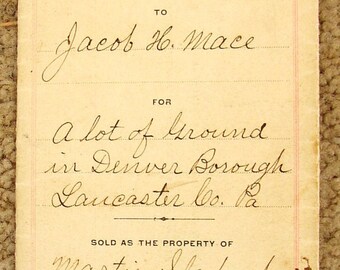 TO
Jacob H. Mace
FOR
A lot of Ground
in Denver Borough
Lancaster Co. Pa
SOLD AS THE PROPERTY OF
Martin